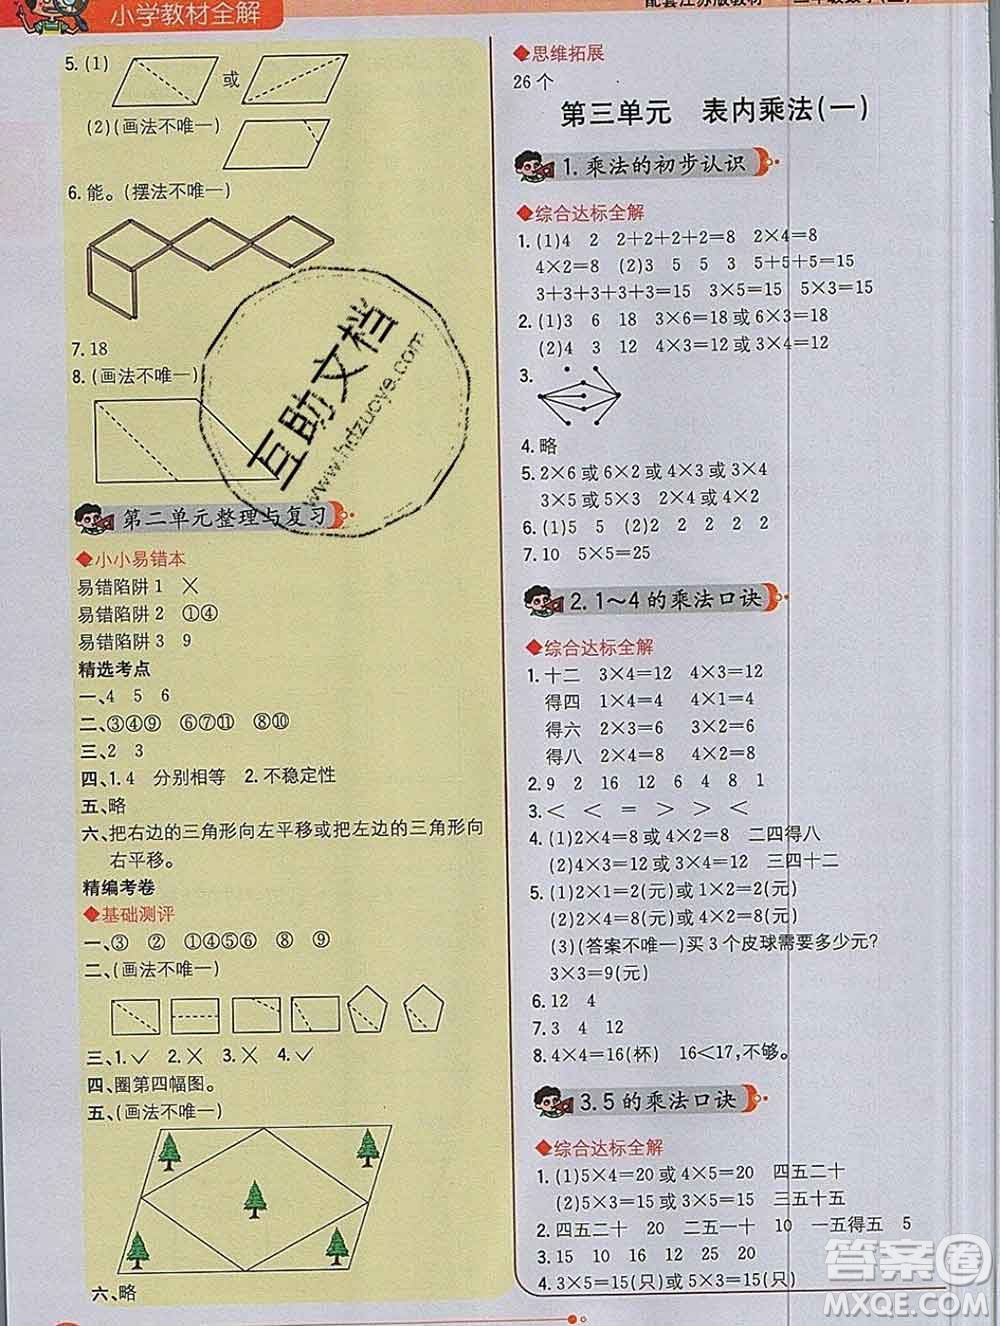 小学教材全解
配套江苏版教材
5.(1) 或
(2)(画法不唯一)
6.能。(摆法不唯一)
7.18
8.(画法不唯一)
第二单元整理与复习
◆小小易错本
易错陷阱1 ×
易错陷阱2 ①④
易错陷阱3 9
精选考点
一、4 5 6
二、③④⑨ ⑥⑦⑪ ⑧⑩
三、2 3
四、1.4 分别相等 2.不稳定性
五、略
六、把右边的三角形向左平移或把左边的三角形向
右平移。
精编考卷
◆基础测评
一、③ ② ①④⑤⑦ ⑧ ⑨
二、(画法不唯一)
三、1.✓ 2.× 3.× 4.✓
四、圈第四幅图。
五、(画法不唯一)
六、略
◆思维拓展
26个
第三单元 表内乘法(一)
1.乘法的初步认识
◆综合达标全解
1.(1)4 2 2+2+2+2=8 2×4=8
4×2=8 (2)3 5 5 3 5+5+5=15
3+3+3+3+3=15 3×5=15 5×3=15
2.(1)3 6 18 3×6=18或6×3=18
(2)4 3 12 4×3=12或3×4=12
3.
4.略
5.2×6或6×2或4×3或3×4
3×5或5×3 5×2或2×5
6.(1)5 5 (2)2 2 2 2 2
7.10 5×5=25
2.1～4的乘法口诀
◆综合达标全解
1.十二 3×4=12 4×3=12
得四 1×4=4 4×1=4
得六 2×3=6 3×2=6
得八 2×4=8 4×2=8
2.9 2 16 12 6 4 8 1
3.< < = > > <
4.(1)2×4=8或4×2=8 二四得八
(2)4×3=12或3×4=12 三四十二
5.(1)2×1=2(元)或1×2=2(元)
(2)2×4=8(元)或4×2=8(元)
(3)(答案不唯一)买3个皮球需要多少元?
3×3=9(元)
6.12 4
7.3 4 12
8.4×4=16(杯) 16<17,不够。
3.5的乘法口诀
◆综合达标全解
1.(1)5×4=20或4×5=20 四五二十
(2)5×3=15或3×5=15 三五十五
2.四五二十 20 二五一十 10 一五得五 5
3.15 10 16 12 25 9
4.3×5=15(只)或5×3=15(只)
互助文档
www.hdzuoye.com
答案圈
MXQE.COM